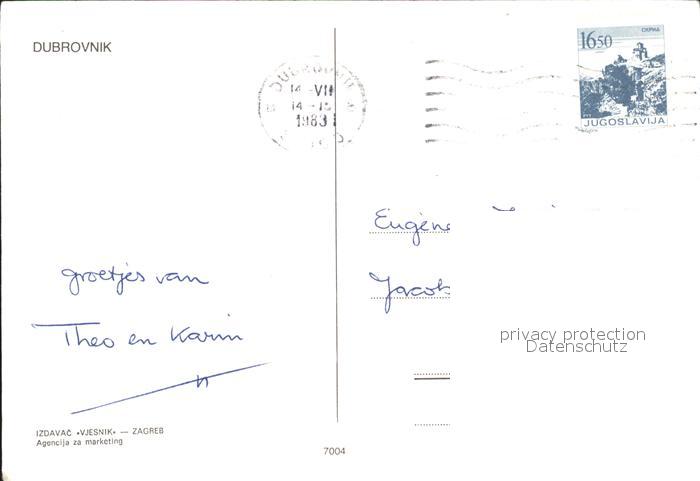 DUBROVNIK
DUBROVNIK
14-VII
14-15
1983
СКРИП
1650
JUGOSLAVIJA
Eugène
groetjes van
Theo en Karin
privacy protection
Datenschutz
IZDAVAČ «VJESNIK» — ZAGREB
Agencija za marketing
7004